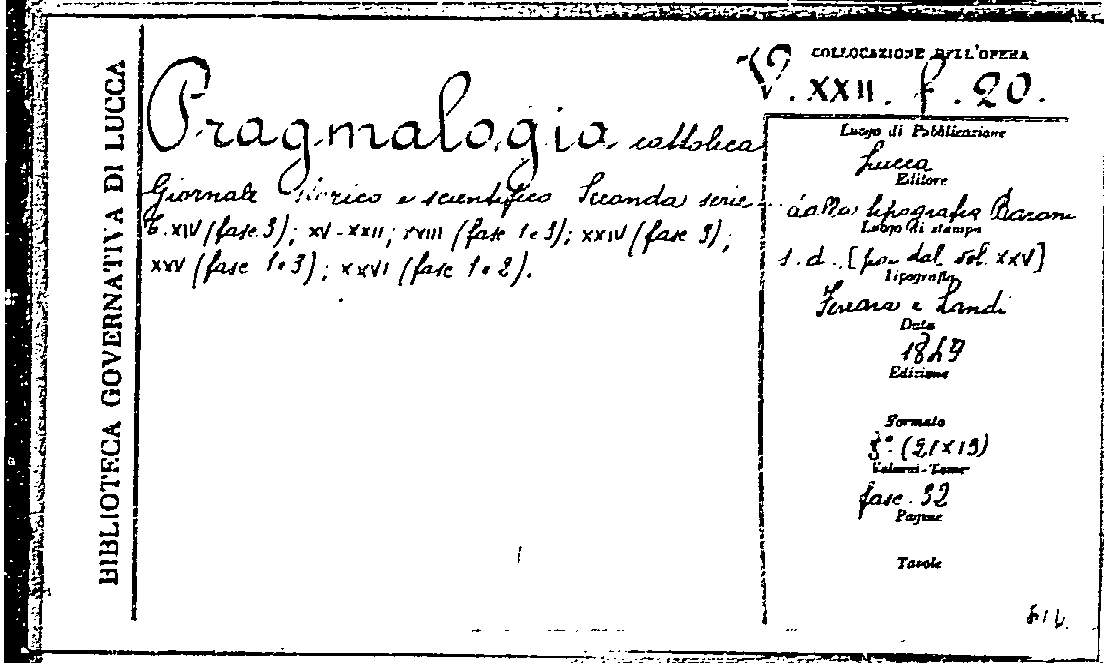 BIBLIOTECA GOVERNATIVA DI LUCCA
Pragmalogia cattolica
Giornale storico e scientifico Seconda serie
T. XIV (fasc 3); XV-XXII; XVIII (fasc 1e3); XXIV (fasc 3);
XXV (fasc 1e3); XXVI (fasc 1e2).
COLLOCAZIONE DELL'OPERA
V. XXII. f. 20.
Luogo di Pubblicazione
Lucca
Editore
dalla tipografia Baroni
Luogo di stampa
s. d. [poi dal vol. XXV]
Tipografia
Ferrara e Landi
Data
1849
Edizione
Formato
8° (21x13)
Volumi-Tomo
fasc. 32
Pagine
Tavole